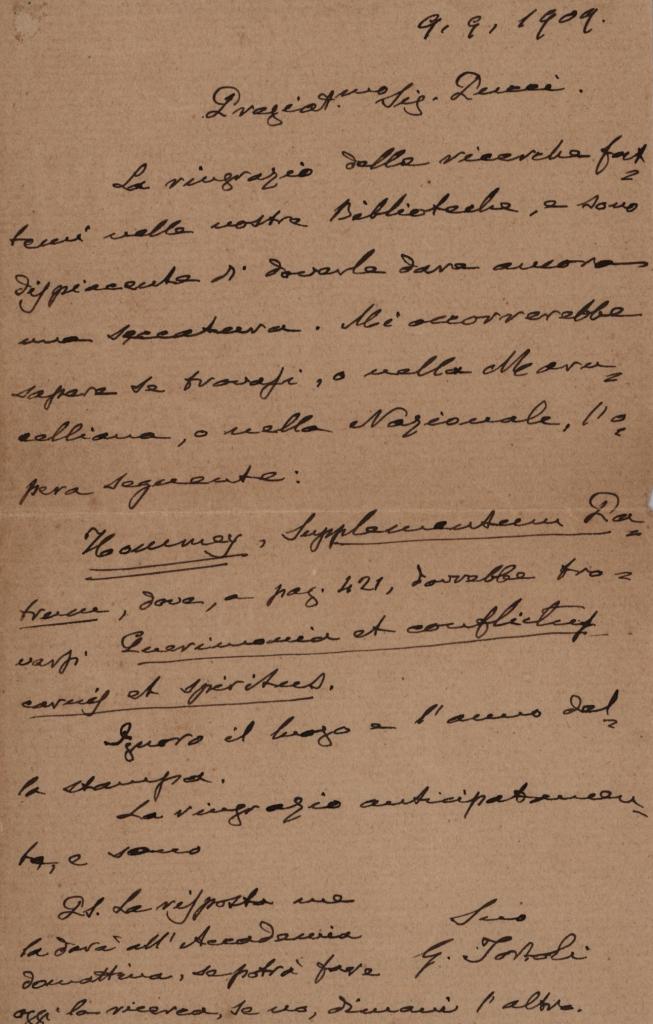 9. 9. 1909.
Pregiat.mo Sig. Pucci.
La ringrazio delle ricerche fat=
temi nelle nostre Biblioteche, e sono
dispiacente di doverle dare ancora
una seccatura. Mi occorrerebbe
sapere se trovasi, o nella Maru=
celliana, o nella Nazionale, l'o=
pera seguente:
Hommey, Supplementum Pa=
trum, dove, a pag. 421, dovrebbe tro=
varsi Querimonia et conflictus
carnis et spiritus.
Ignoro il luogo e l'anno del=
la stampa.
La ringrazio anticipatamen=
te, e sono
Suo
G. Tortoli
PS. La risposta me
la darà all'Accademia
domattina, se potrà fare
oggi la ricerca, se no, dimani l'altro.